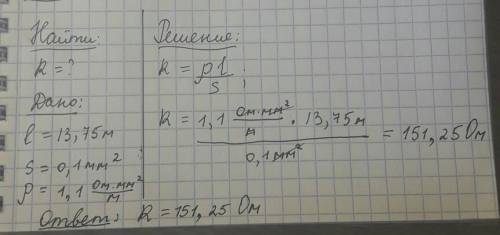 Найти:
R = ?
Дано:
l = 13,75 м
S = 0,1 мм²
ρ = 1,1 Ом·мм²/м
Решение:
R = ρl/S;
R = 1,1 Ом·мм²/м · 13,75 м / 0,1 мм² = 151,25 Ом
Ответ: R = 151,25 Ом